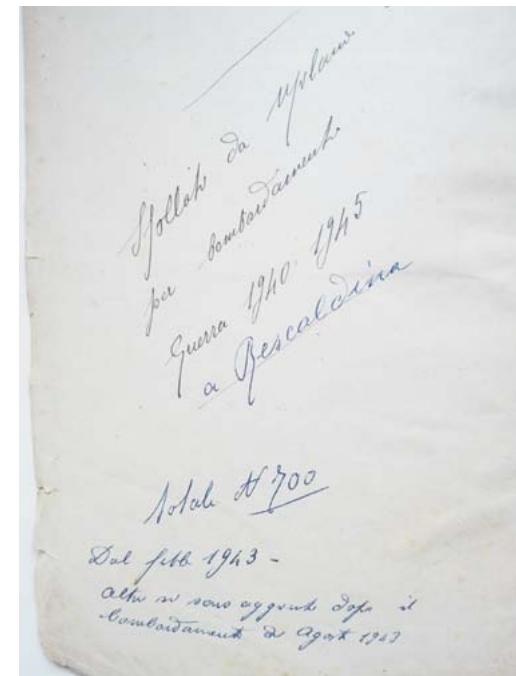 Sfollati da Milano
per bombardamenti
Guerra 1940 1945
a Rescaldina
totale N 700
Dal febb 1943 -
altri si sono aggiunti dopo il
bombardamento di Agost 1943